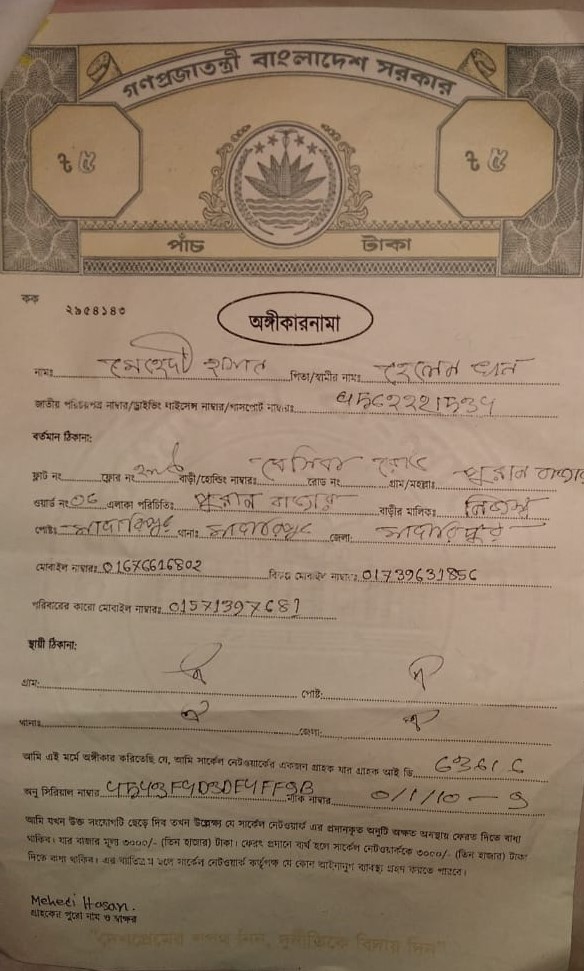 গণপ্রজাতন্ত্রী বাংলাদেশ সরকার
৳ ৫ ৳ ৫
পাঁচ টাকা
কক ২৯৫৪১৪৩
অঙ্গীকারনামা
নামঃ মেহেদী হাসান পিতা/স্বামীর নামঃ হেলেন খান
জাতীয় পরিচয়পত্র নাম্বার/ড্রাইভিং লাইসেন্স নাম্বার/পাসপোর্ট নাম্বারঃ
বর্তমান ঠিকানা:
ফ্লাট নং ফ্লোর নং বাড়ী/হোল্ডিং নাম্বারঃ রোড নং গ্রাম/মহল্লাঃ পুরান বাজার
ওয়ার্ড নং ০৬ এলাকা পরিচিতিঃ পুরান বাজার বাড়ীর মালিকঃ নিজস্ব
পোষ্টঃ মাদারিপুর থানাঃ মাদারিপুর জেলাঃ মাদারিপুর
মোবাইল নাম্বারঃ 01676616802 বিকল্প মোবাইল নাম্বারঃ 01739631856
পরিবারের কারো মোবাইল নাম্বারঃ 01571397681
স্থায়ী ঠিকানা:
গ্রাম: পোষ্ট:
থানাঃ জেলা:
আমি এই মর্মে অঙ্গীকার করিতেছি যে, আমি সার্কেল নেটওয়ার্কের একজন গ্রাহক যার গ্রাহক আই ডি
অনু সিরিয়াল নাম্বার নাম্বার 0/1/10 – 9
আমি যখন উক্ত সংযোগটি ছেড়ে দিব তখন উল্লেখ্য যে সার্কেল নেটওয়ার্ক এর প্রদানকৃত অনুটি অক্ষত অবস্থায় ফেরত দিতে বাধ্য
থাকিব। যার বাজার মূল্য ৩০০০/- (তিন হাজার) টাকা। ফেরৎ প্রদানে ব্যর্থ হলে সার্কেল নেটওয়ার্ককে ৩০০০/- (তিন হাজার) টাকা
দিতে বাধ্য থাকিব। এর ব্যতিক্রম হলে সার্কেল নেটওয়ার্ক কর্তৃপক্ষ যে কোন আইনানুগ ব্যবস্থা গ্রহন করতে পারবে।
Mehedi Hasan.
গ্রাহকের পুরো নাম ও স্বাক্ষর
"দেশপ্রেমের শপথ নিন, দুর্নীতিকে বিদায় দিন"